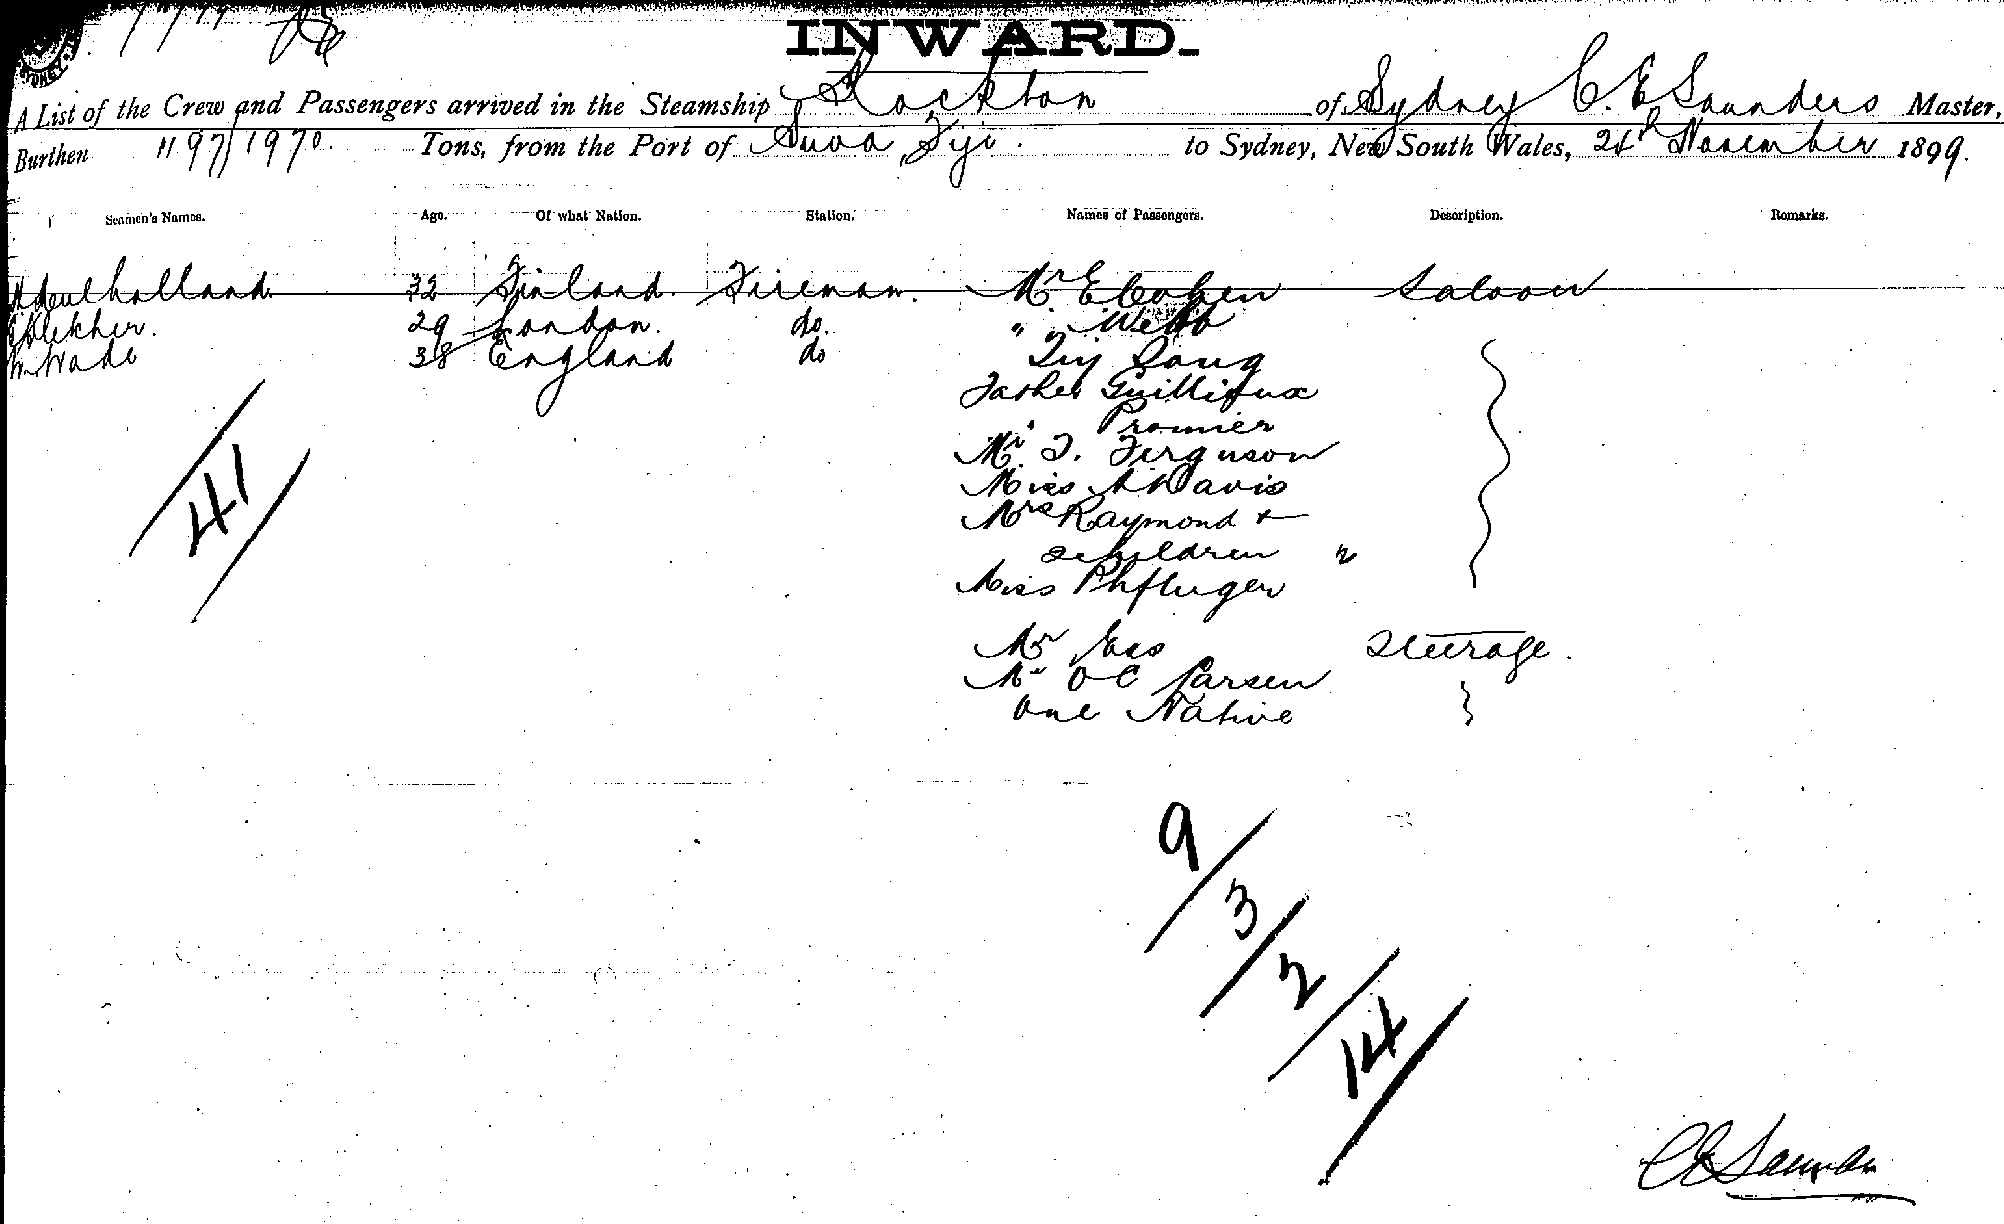 INWARD.
A List of the Crew and Passengers arrived in the Steamship Rockton of Sydney C. E Saunders Master,
Burthen 1197/1970. Tons, from the Port of Suva, Fiji. to Sydney, New South Wales, November 1899.
Seamen's Names. Age. Of what Nation. Station. Names of Passengers. Description. Remarks.
32 Finland. Fireman. Mr E Cohen Saloon
29 London. do. " Webb
Wade 38 England do
Father
Mr Ferguson
Miss Davis
Mrs Raymond +
children "
Miss Phfluger
41
Mr Steerage.
Mr O C Larsen
One Native
9
3
2
14
C E Saunders